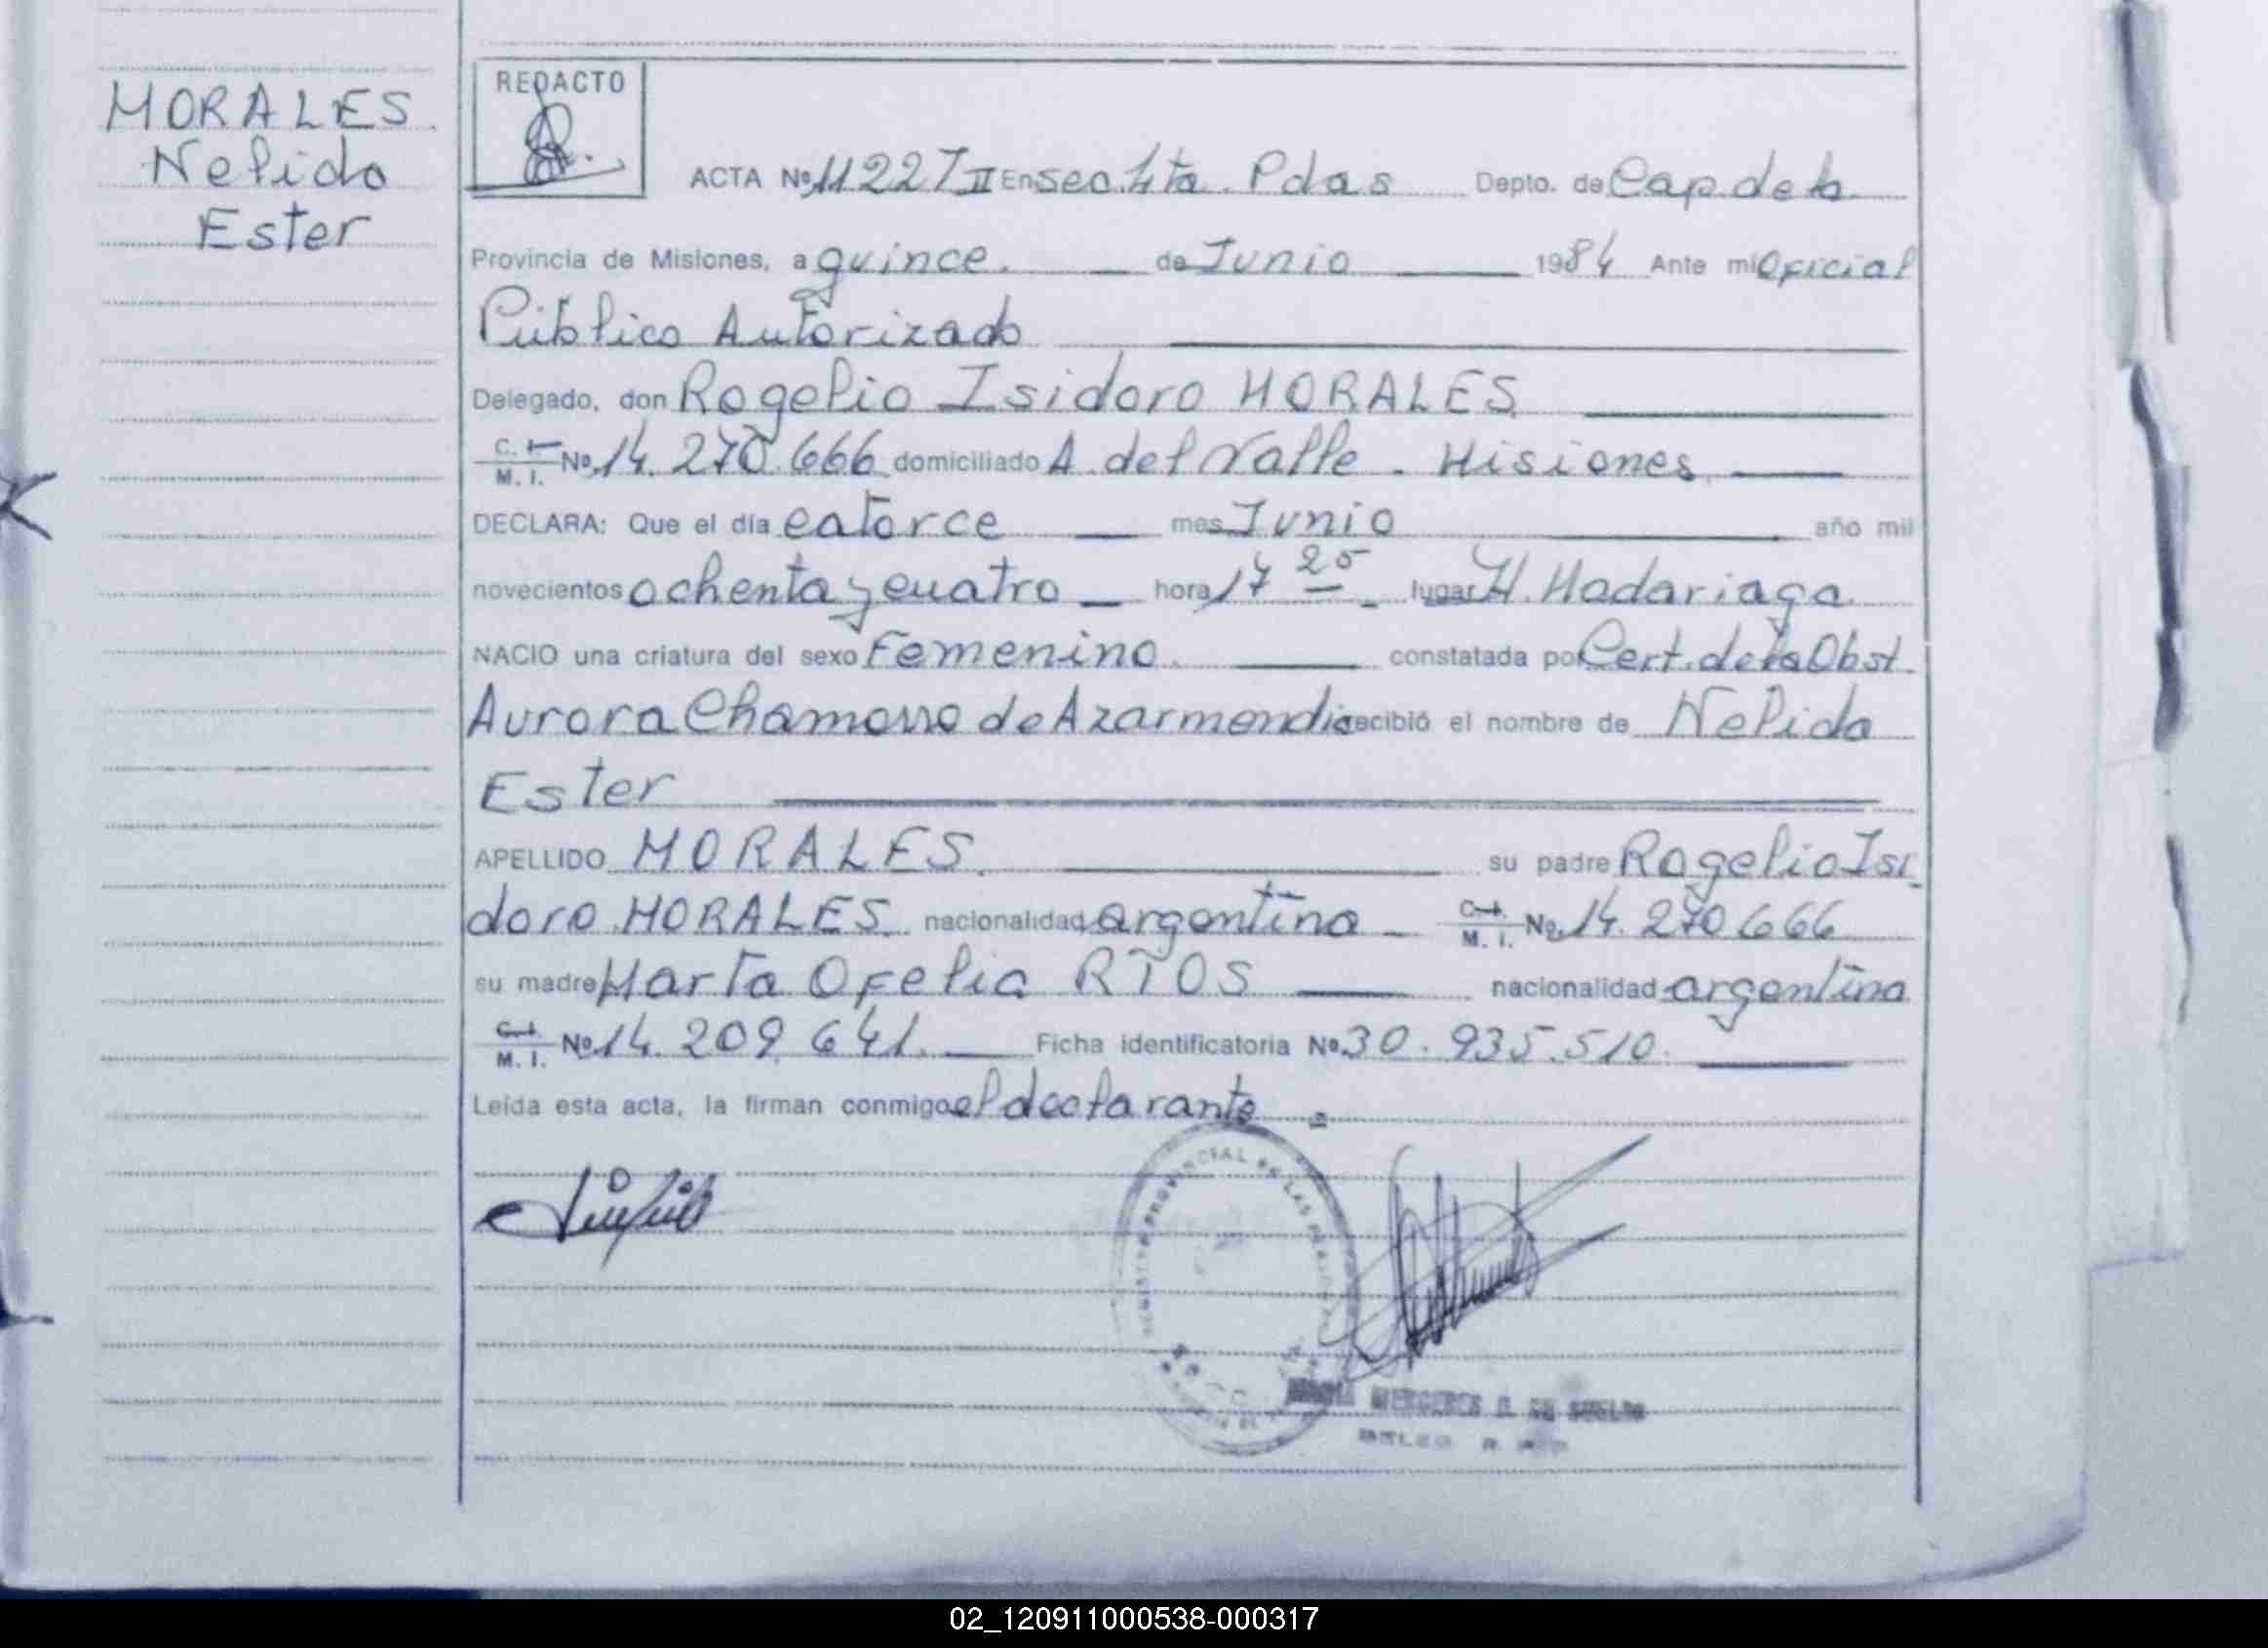 MORALES
Nelida
Ester
REDACTO
ACTA Nº 1122 T II En sec. 4ta. Pdas Depto. de Cap. de la
Provincia de Misiones, a quince. de Junio 1984 Ante mi Oficial
Público Autorizado
Delegado, don Rogelio Isidoro MORALES
C. I. M. I. Nº 14.270.666 domiciliado A. del Valle. Misiones
DECLARA: Que el día catorce mes Junio año mil
novecientos ochenta y cuatro hora 17 25 lugar H. Madariaga
NACIO una criatura del sexo Femenino. constatada por Cert. de la Obst.
Aurora Chamorro de Azarmendia recibió el nombre de Nelida
Ester
APELLIDO MORALES. su padre Rogelio Isi
doro MORALES. nacionalidad argentina C. I. M. I. Nº 14.270 666
su madre Marta Ofelia RIOS nacionalidad argentina
C. I. M. I. Nº 14.209.641. Ficha identificatoria Nº 30.935.510.
Leída esta acta, la firman conmigo el declarante
REGISTRO PROVINCIAL DE LAS PERSONAS
02_120911000538-000317